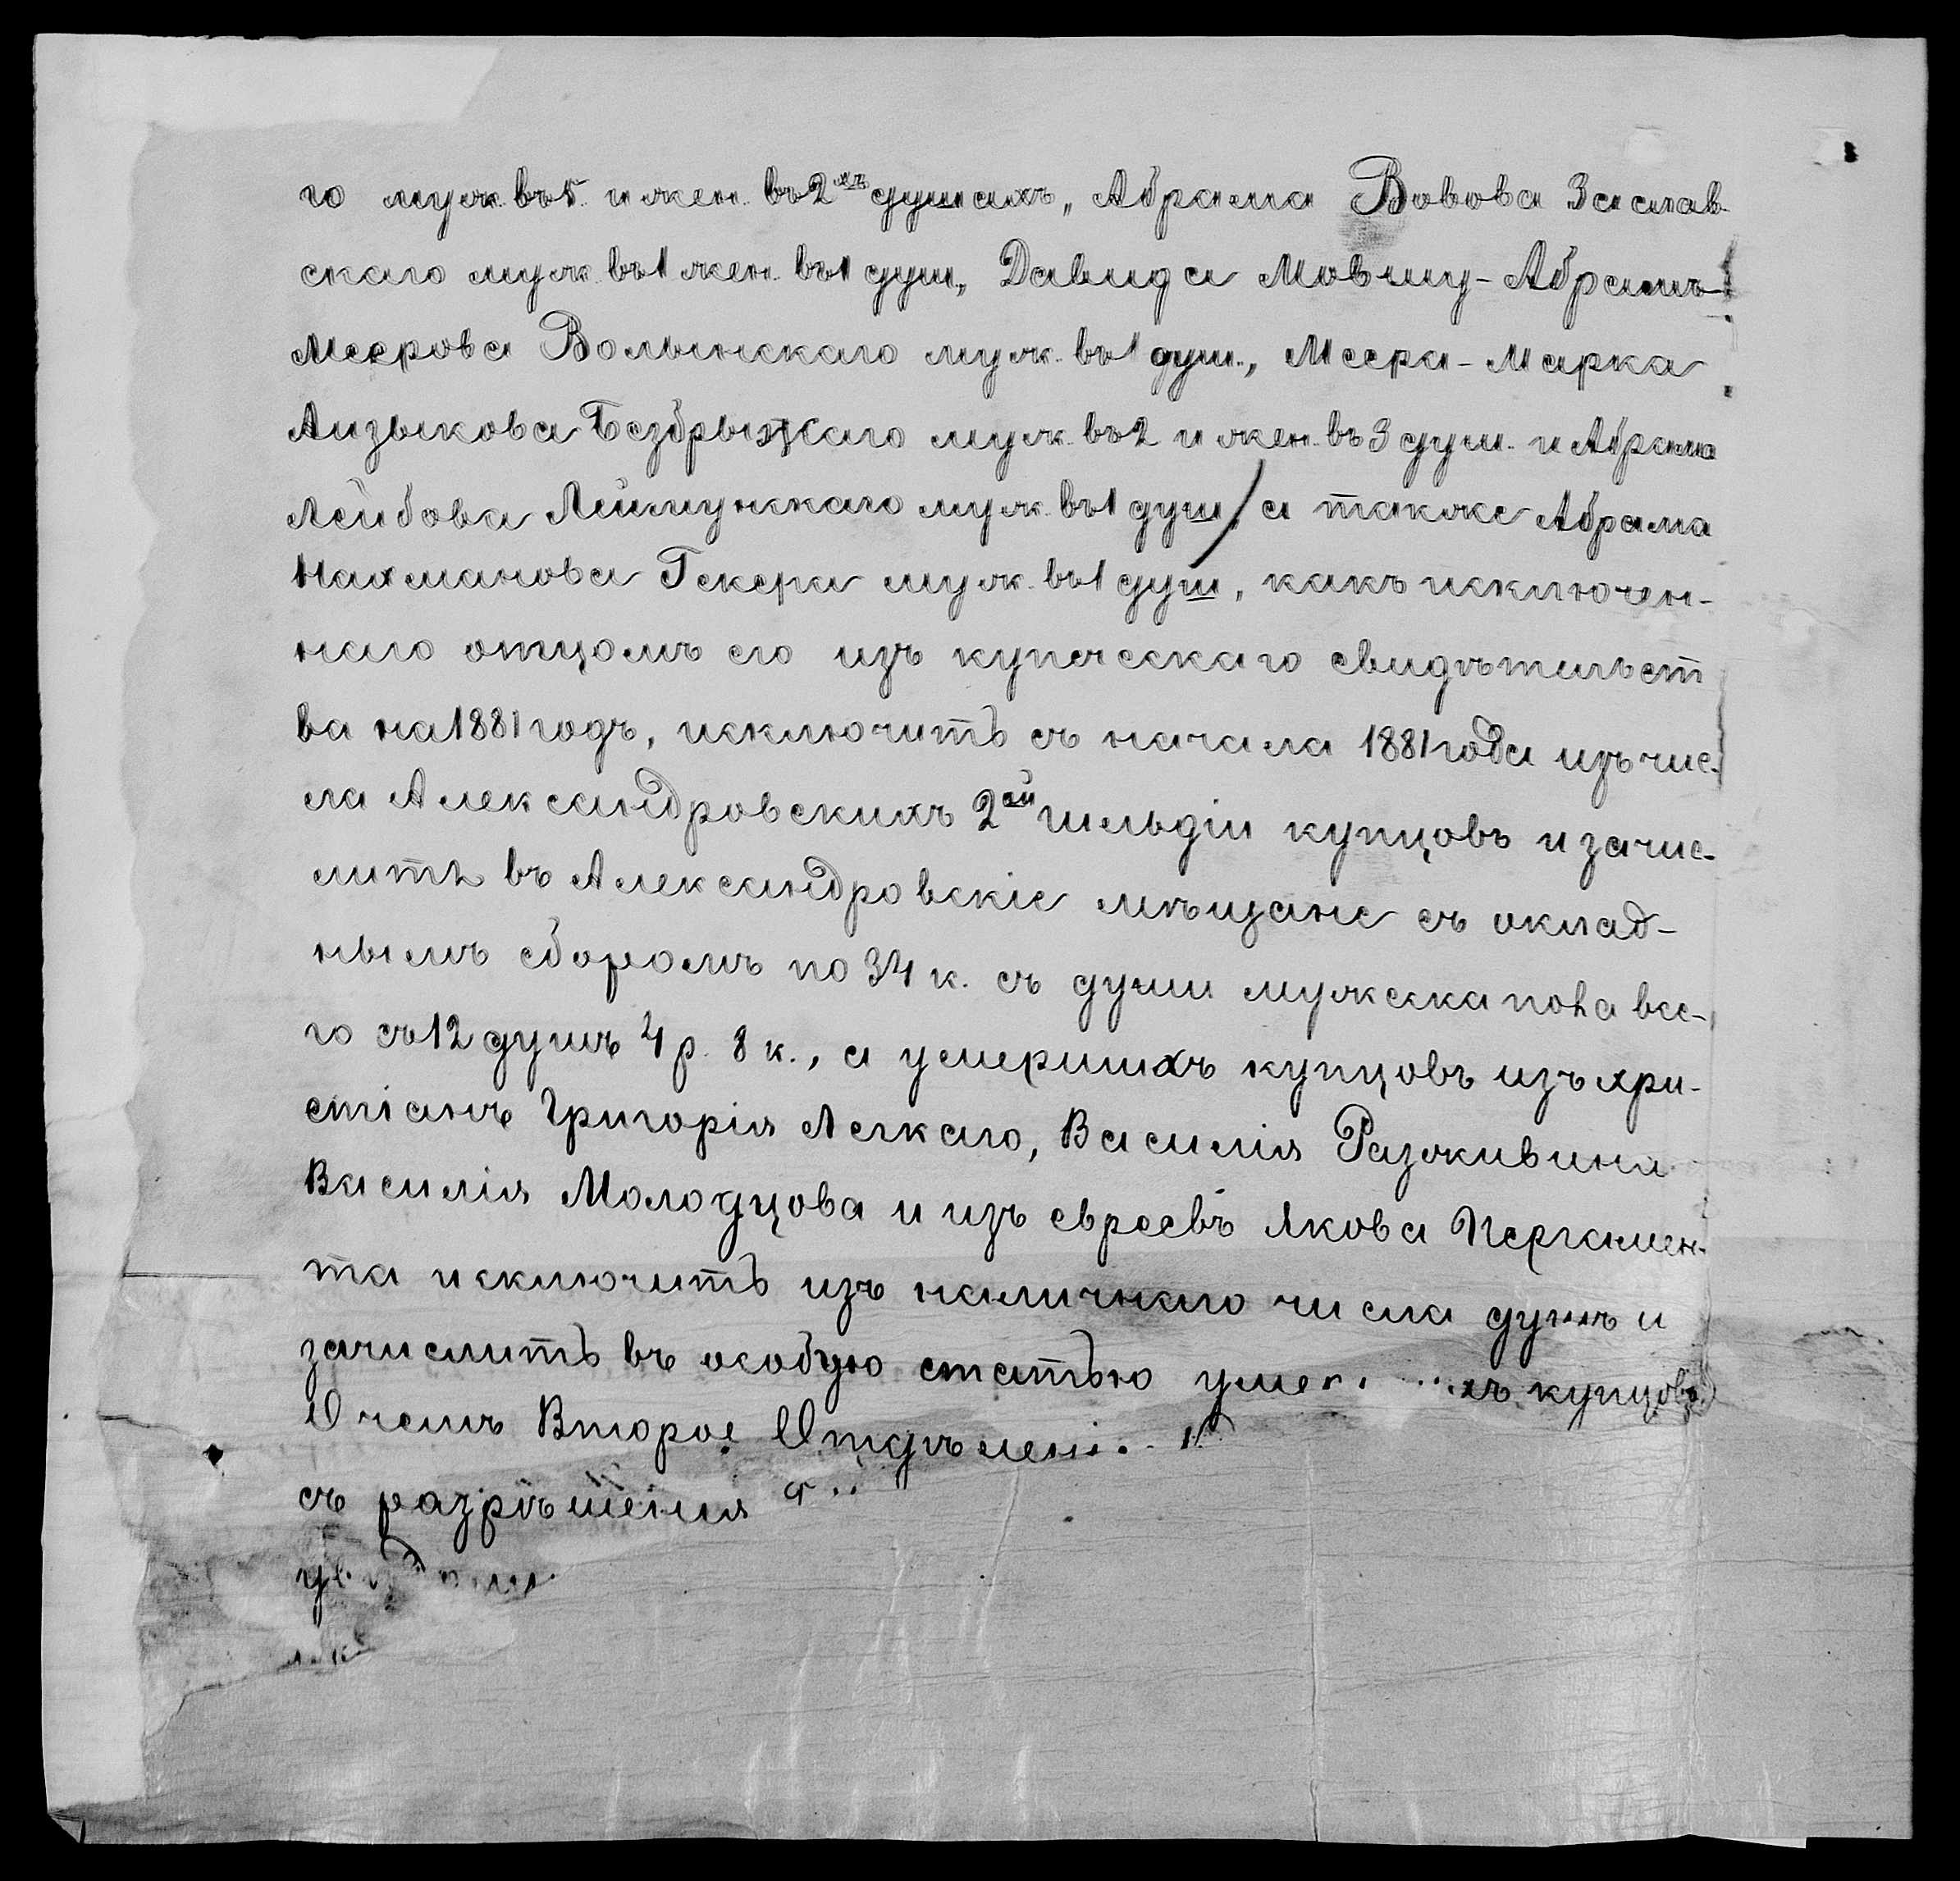 го муж. въ 5. и жен. въ 2хъ душахъ, Абрама Вовова Заслав-
скаго муж. въ 1 жен. въ 1 душ., Давида Мовшу-Абрамъ-
Меерова Волынскаго муж. въ 1 душ., Меера-Марка
Аизыкова Безбрыжаго муж. въ 2 и жен. въ 3 душ. и Абрама
Лейбова муж. въ 1 душ, а также Абрама
Нахманова Гекера муж. въ 1 душ, какъ исключен-
наго отцомъ его изъ купеческаго свидѣтельст
ва на 1881 годъ, исключить съ начала 1881 года изъ чис-
ла Александровскихъ 2ой гильдіи купцовъ и зачис-
лить въ Александровскіе мѣщане съ оклад-
нымъ сборомъ по 34 к. съ души мужеска пола все-
го съ 12 душъ 4 р. 8 к., а умершихъ купцовъ изъ хри-
стіанъ Григорія Легкаго, Василія Разживина
Василія Молодцова и изъ евреевъ Якова Пергамен-
та исключить изъ наличнаго числа душъ и
зачислить въ особую статью купцовъ.
О чемъ Второе
съ разрѣшенія